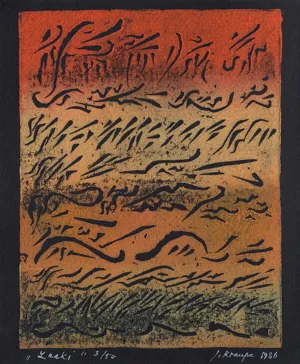 „Znaki” 3/50 J. Kraupe 1986